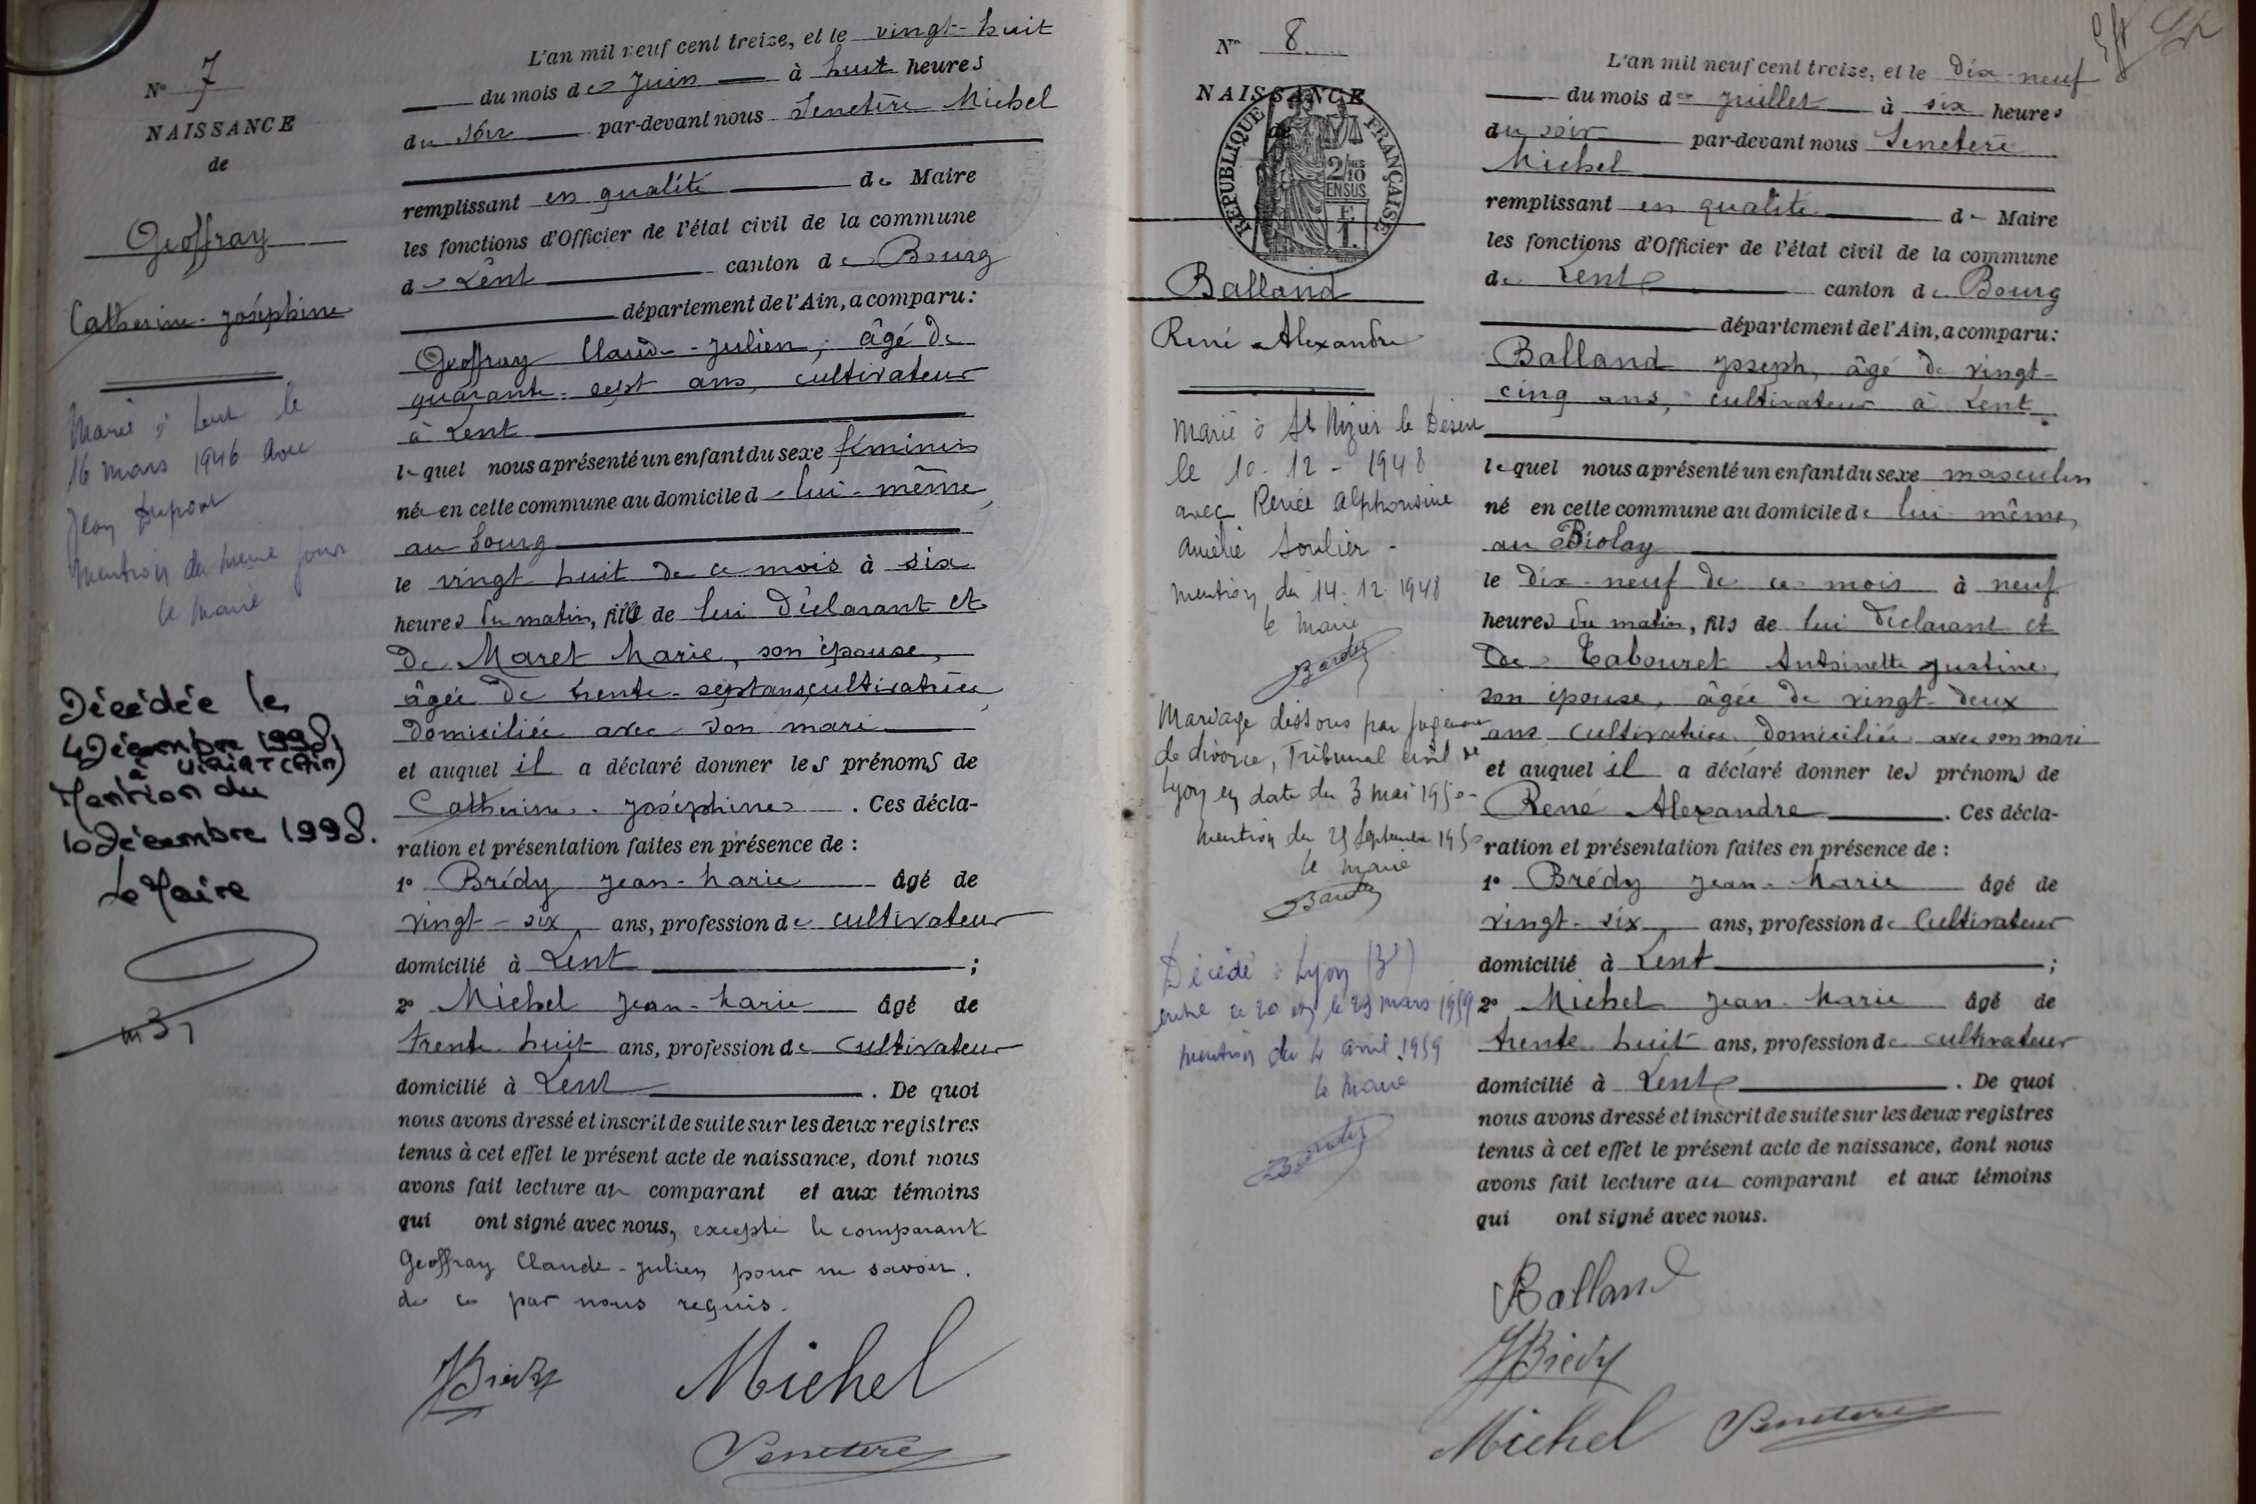 N° 7
NAISSANCE
de
Geoffray
Catherine-Joséphine
Marié à Lent le
16 mars 1946 avec
Jean Dupont
mention du même jour
le maire
Décédée le
4 Décembre 1998
à VIRIAT (Ain)
Mention du
10 Décembre 1998.
Le Maire
L'an mil neuf cent treize, et le vingt-huit
du mois de Juin à huit heures
du soir par-devant nous Senetère Michel
remplissant en qualité de Maire
les fonctions d'Officier de l'état civil de la commune
de Lent canton de Bourg
département de l'Ain, a comparu:
Geoffray Claude-Julien, âgé de
quarante-sept ans, cultivateur
à Lent
lequel nous a présenté un enfant du sexe féminin
née en cette commune au domicile de lui-même,
au bourg
le vingt huit de ce mois à six
heures du matin, fille de lui déclarant et
de Maret Marie, son épouse,
âgée de trente-sept ans, cultivatrice,
domiciliée avec son mari
et auquel il a déclaré donner les prénoms de
Catherine-Joséphine. Ces décla-
ration et présentation faites en présence de :
1° Brédy Jean-Marie âgé de
vingt-six ans, profession de cultivateur
domicilié à Lent ;
2° Michel Jean-Marie âgé de
trente huit ans, profession de cultivateur
domicilié à Lent. De quoi
nous avons dressé et inscrit de suite sur les deux registres
tenus à cet effet le présent acte de naissance, dont nous
avons fait lecture au comparant et aux témoins
qui ont signé avec nous, excepté le comparant
Geoffray Claude-Julien pour ne savoir.
de ce par nous requis.
JBrédy Michel
Senetère
N° 8
NAISSANCE
de
REPUBLIQUE FRANÇAISE
2/10 EN SUS
Balland
René Alexandre
Marié à St Nizier le Désert
le 10-12-1948
avec Renée Alphonsine
Amélie Soulier -
mention du 14.12.1948
le maire
Bardet
Mariage dissous par jugement
de divorce, Tribunal civil de
Lyon en date du 3 mai 1950-
mention du 25 septembre 1950
le maire
Bardet
Décédé à Lyon (3e)
entre le 20 et le 23 mars 1959
mention du 4 avril 1959
le maire
Bardet
L'an mil neuf cent treize, et le dix-neuf
du mois de Juillet à six heures
du soir par-devant nous Senetère
Michel
remplissant en qualité de Maire
les fonctions d'Officier de l'état civil de la commune
de Lent canton de Bourg
département de l'Ain, a comparu:
Balland Joseph, âgé de vingt-
cinq ans, cultivateur à Lent
lequel nous a présenté un enfant du sexe masculin
né en cette commune au domicile de lui-même,
au Biolay
le dix-neuf de ce mois à neuf
heures du matin, fils de lui déclarant et
de Tabouret Antoinette Justine,
son épouse, âgée de vingt-deux
ans, cultivatrice, domiciliée avec son mari
et auquel il a déclaré donner les prénoms de
René Alexandre. Ces décla-
ration et présentation faites en présence de :
1° Brédy Jean-Marie âgé de
vingt-six ans, profession de Cultivateur
domicilié à Lent ;
2° Michel Jean-Marie âgé de
trente huit ans, profession de cultivateur
domicilié à Lent. De quoi
nous avons dressé et inscrit de suite sur les deux registres
tenus à cet effet le présent acte de naissance, dont nous
avons fait lecture au comparant et aux témoins
qui ont signé avec nous.
Balland
JBrédy
Michel Senetère